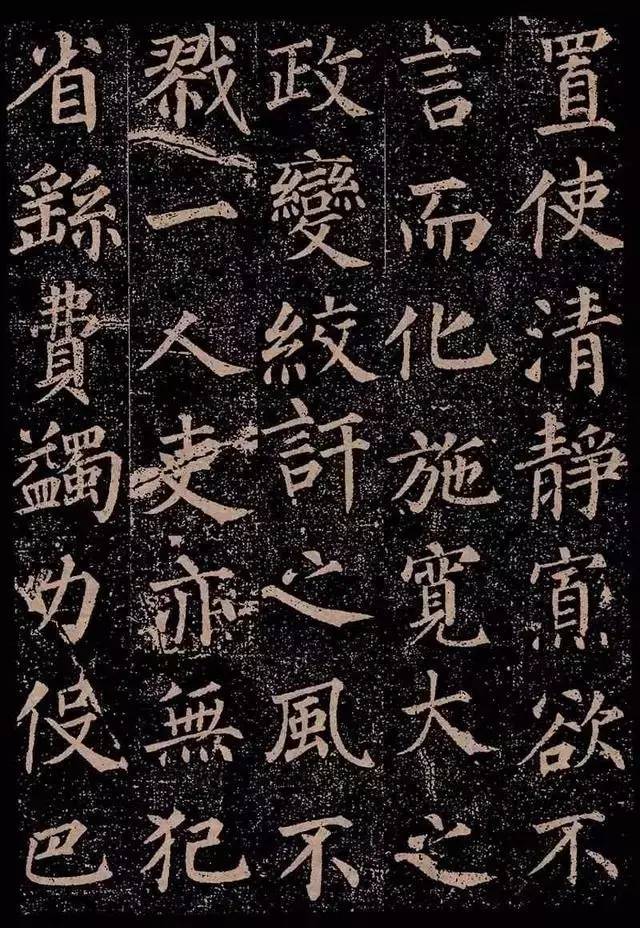 置使清靜寡欲不
言而化施寬大之
政變絞訐之風不
戮一人吏亦無犯
省繇費蠲力伇巴